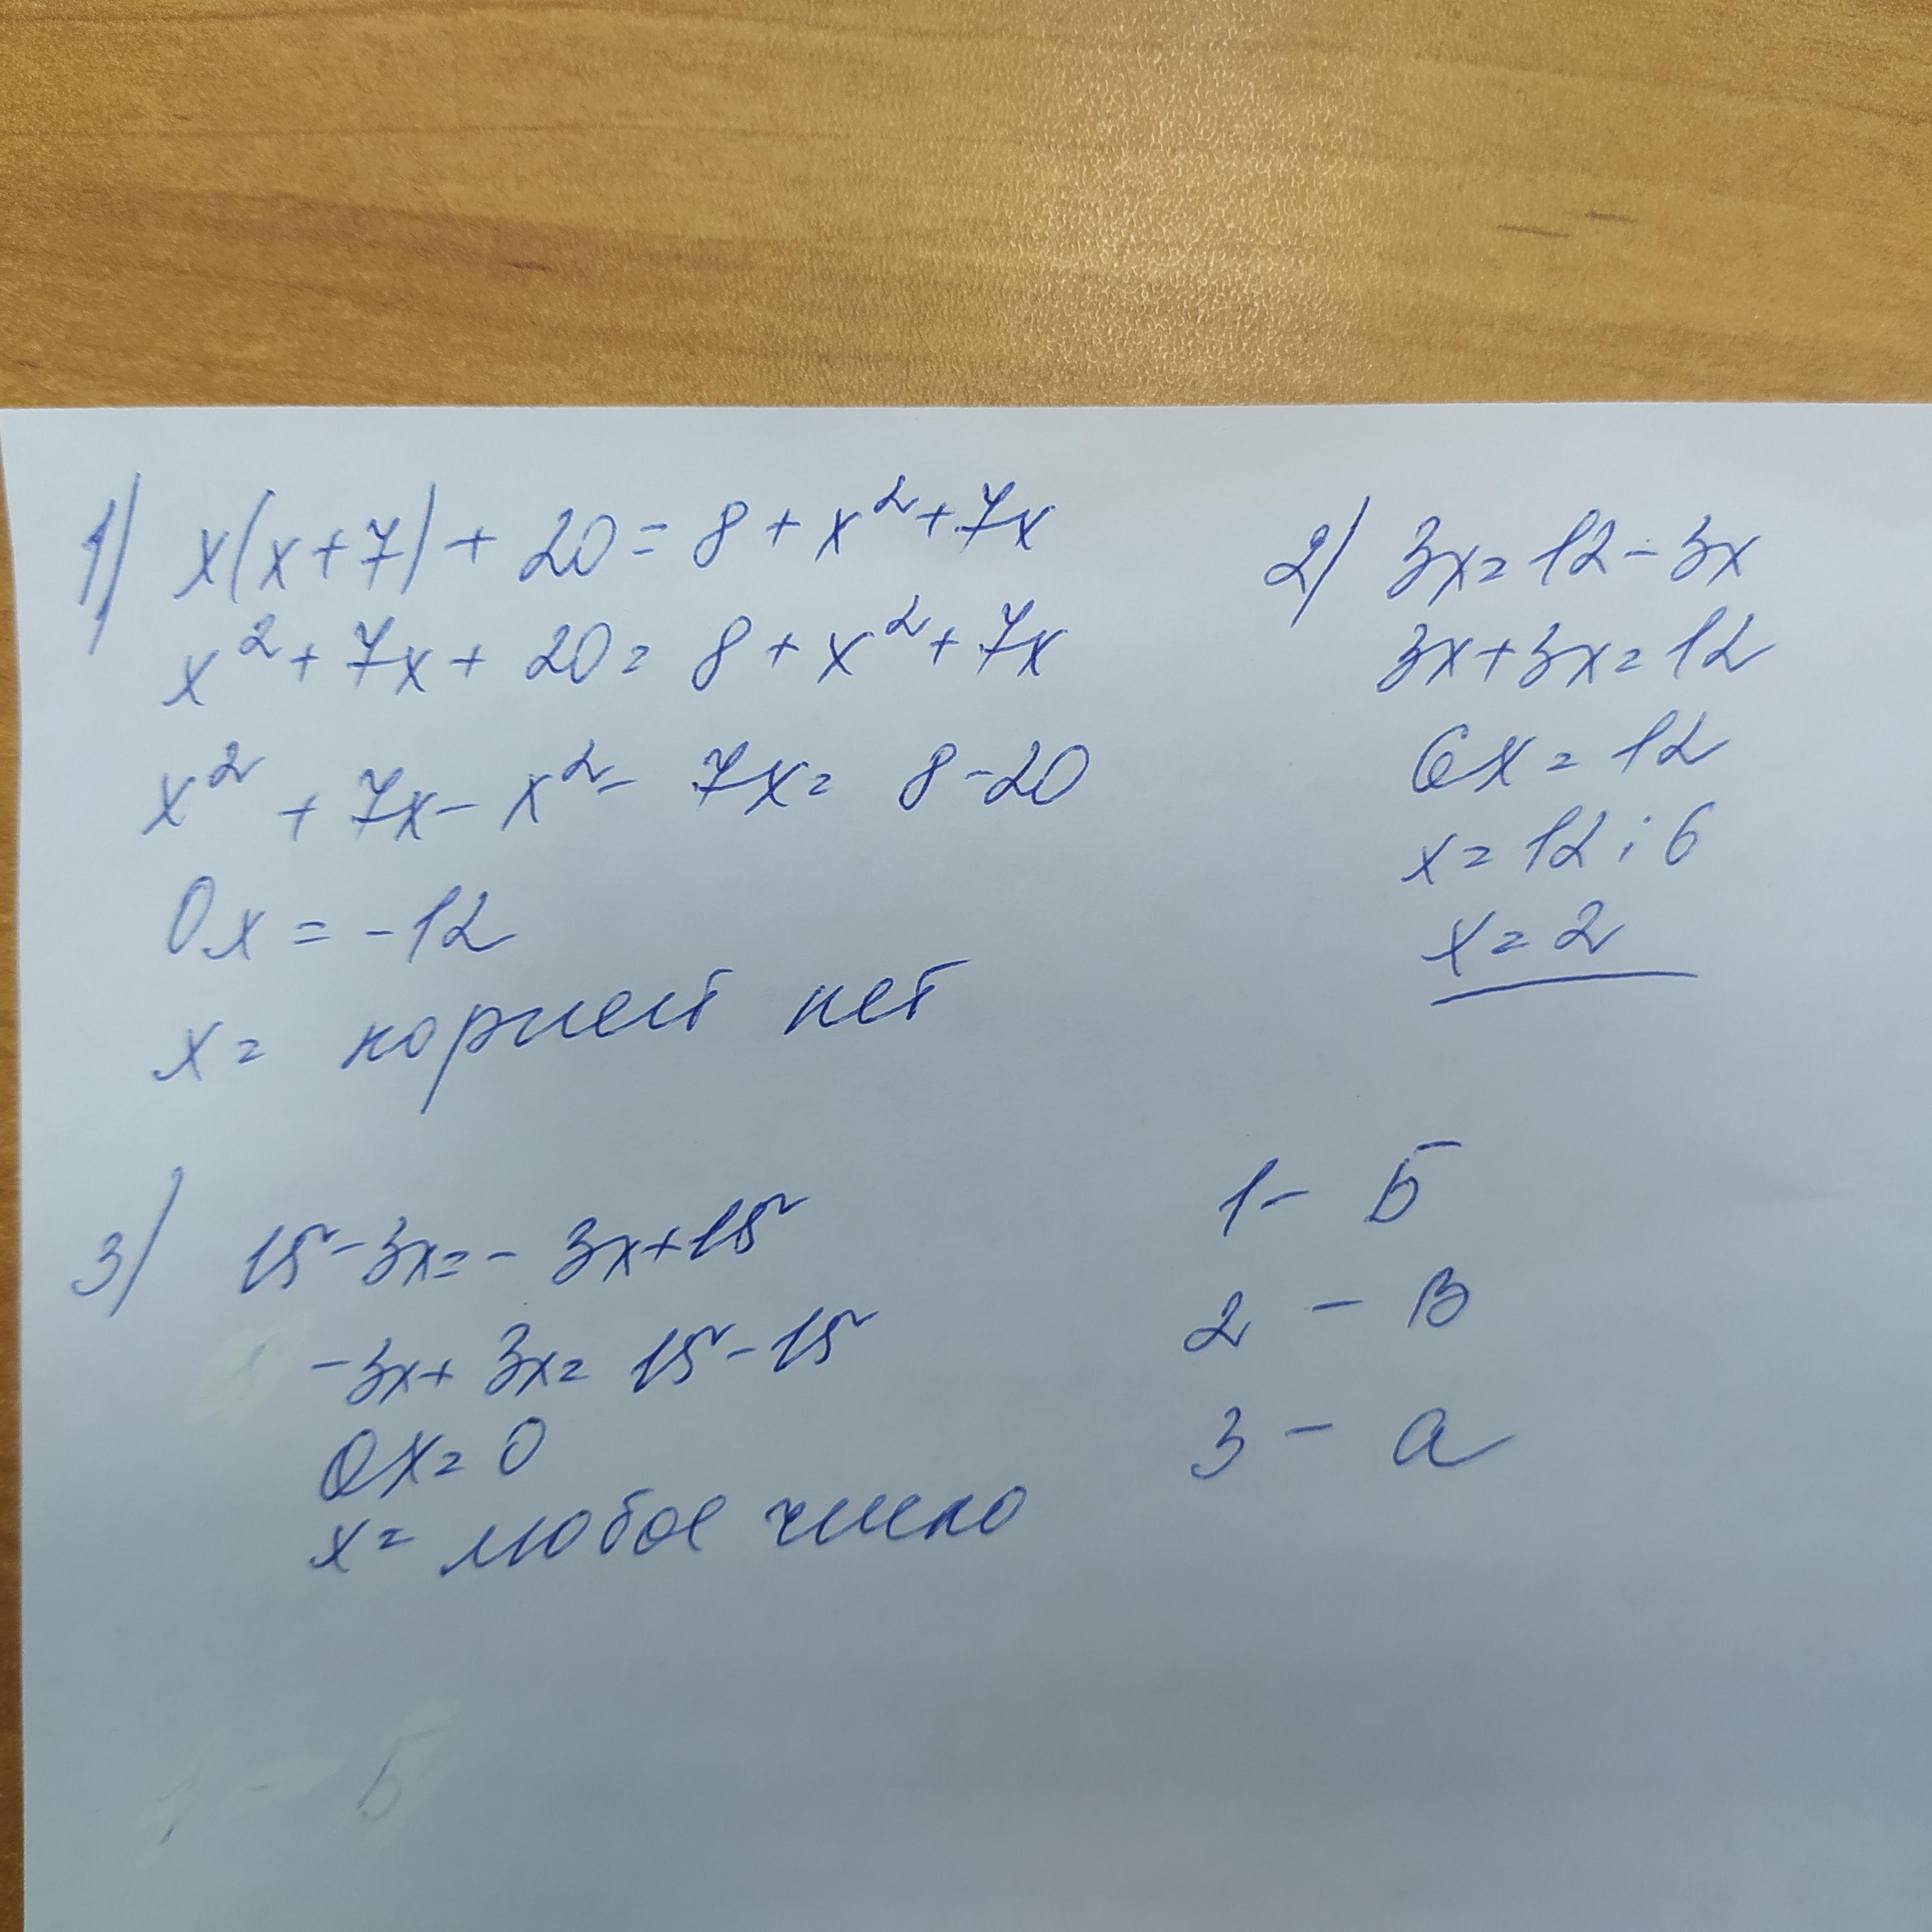 1) x(x+7)+20=8+x²+7x
x²+7x+20=8+x²+7x
x²+7x-x²-7x=8-20
0x=-12
x= корней нет
2) 3x=12-3x
3x+3x=12
6x=12
x=12:6
x=2
3) 15-3x=-3x+15
-3x+3x=15-15
0x=0
x= любое число
1- Б
2 - В
3 - а
1 - Б